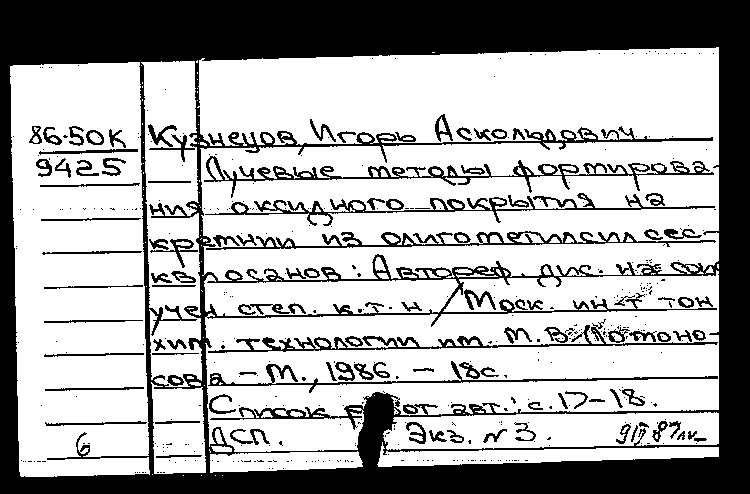 86-50К Кузнецов, Игорь Аскольдович.
9425 Лучевые методы формирова-
ния оксидного покрытия на
кремнии из олигометилсилсес-
квиосанов: Автореф. дис. на соис
учен. степ. к.т.н. / Моск. ин-т тон
хим. технологии им. М. В. Ломоно-
сова. - М., 1986. - 18с.
Список работ авт.: с. 17-18.
6 ДСП. Экз. №3.